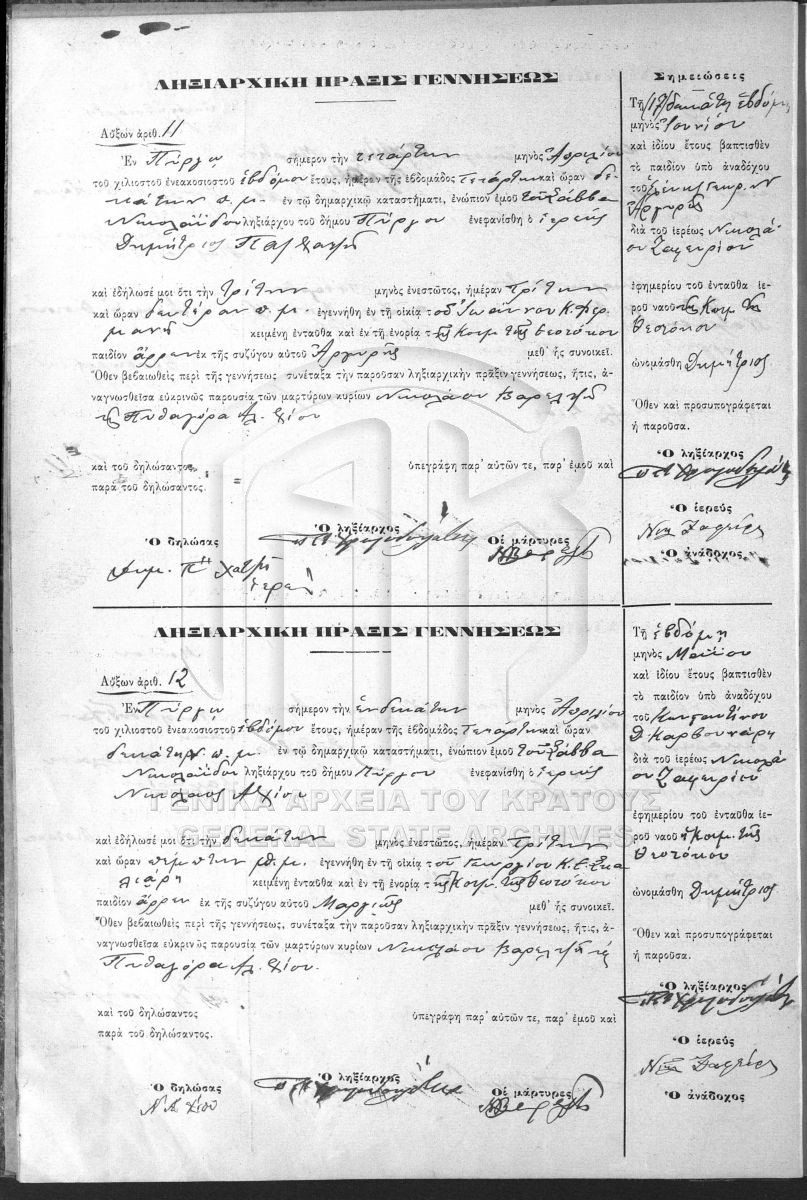 ΛΗΞΙΑΡΧΙΚΗ ΠΡΑΞΙΣ ΓΕΝΝΗΣΕΩΣ
Αὔξων ἀριθ. 11
Ἐν Πύργῳ σήμερον τὴν τετάρτην μηνὸς Ἀπριλίου
τοῦ χιλιοστοῦ ἐνεακοσιοστοῦ ἑβδόμου ἔτους, ἡμέραν τῆς ἑβδομάδος Τετάρτην καὶ ὥραν δε-
κάτην π.μ. ἐν τῷ δημαρχικῷ καταστήματι, ἐνώπιον ἐμοῦ τοῦ Σάββα
Νικολαΐδου ληξιάρχου τοῦ δήμου Πύργου ἐνεφανίσθη ὁ ἱερεὺς
Δημήτριος
καὶ ἐδήλωσέ μοι ὅτι τὴν τρίτην μηνὸς ἐνεστῶτος, ἡμέραν τρίτην
καὶ ὥραν δευτέραν π.μ. ἐγεννήθη ἐν τῇ οἰκίᾳ τοῦ Ἰωάννου Κ. Φερ-
μανῆ κειμένῃ ἐνταῦθα καὶ ἐν τῇ ἐνορίᾳ τῆς Κοιμ. τῆς Θεοτόκου
παιδίον ἄρρεν ἐκ τῆς συζύγου αὐτοῦ Ἀργυρῆς μεθ᾽ ἧς συνοικεῖ.
Ὅθεν βεβαιωθεὶς περὶ τῆς γεννήσεως συνέταξα τὴν παροῦσαν ληξιαρχικὴν πρᾶξιν γεννήσεως, ἥτις, ἀ-
ναγνωσθεῖσα εὐκρινῶς παρουσίᾳ τῶν μαρτύρων κυρίων Νικολάου Βαρελτζῆ
Πυθαγόρα Αλ. Χίου
καὶ τοῦ δηλώσαντος, ὑπεγράφη παρ᾽ αὐτῶν τε, παρ᾽ ἐμοῦ καὶ
παρὰ τοῦ δηλώσαντος.
Ὁ δηλώσας Ὁ ληξίαρχος Οἱ μάρτυρες
Σημειώσεις
Τῇ /17/ δεκάτῃ ἑβδόμῃ
μηνὸς Ἰουνίου
καὶ ἰδίου ἔτους βαπτισθὲν
τὸ παιδίον ὑπὸ ἀναδόχου
Ἀργυρῆς
διὰ τοῦ ἱερέως Νικολά-
ου Ζαφειρίου
ἐφημερίου τοῦ ἐνταῦθα ἱε-
ροῦ ναοῦ τῆς Κοιμ. τῆς
Θεοτόκου
ὠνομάσθη Δημήτριος
Ὅθεν καὶ προσυπογράφεται
ἡ παροῦσα.
Ὁ ληξίαρχος
Ὁ ἱερεὺς
Νικ. Ζαφείρη
Ὁ ἀνάδοχος
ΛΗΞΙΑΡΧΙΚΗ ΠΡΑΞΙΣ ΓΕΝΝΗΣΕΩΣ
Αὔξων ἀριθ. 12
Ἐν Πύργῳ σήμερον τὴν ἑνδεκάτην μηνὸς Ἀπριλίου
τοῦ χιλιοστοῦ ἐνεακοσιοστοῦ ἑβδόμου ἔτους, ἡμέραν τῆς ἑβδομάδος Τετάρτην καὶ ὥραν
δεκάτην π.μ. ἐν τῷ δημαρχικῷ καταστήματι, ἐνώπιον ἐμοῦ τοῦ Σάββα
Νικολαΐδου ληξιάρχου τοῦ δήμου Πύργου ἐνεφανίσθη ὁ ἱερεὺς
Νικόλαος Α. Χίου
ΓΕΝΙΚΑ ΑΡΧΕΙΑ ΤΟΥ ΚΡΑΤΟΥΣ
GENERAL STATE ARCHIVES
καὶ ἐδήλωσέ μοι ὅτι τὴν δεκάτην μηνὸς ἐνεστῶτος, ἡμέραν τρίτην
καὶ ὥραν πέμπτην μ.μ. ἐγεννήθη ἐν τῇ οἰκίᾳ τοῦ Γεωργίου Κ. Σκα-
λιάρη κειμένῃ ἐνταῦθα καὶ ἐν τῇ ἐνορίᾳ τῆς Κοιμ. τῆς Θεοτόκου
παιδίον ἄρρεν ἐκ τῆς συζύγου αὐτοῦ Μαργιῶς μεθ᾽ ἧς συνοικεῖ.
Ὅθεν βεβαιωθεὶς περὶ τῆς γεννήσεως, συνέταξα τὴν παροῦσαν ληξιαρχικὴν πρᾶξιν γεννήσεως, ἥτις, ἀ-
ναγνωσθεῖσα εὐκρινῶς παρουσίᾳ τῶν μαρτύρων κυρίων Νικολάου Βαρελτζῆ
Πυθαγόρα Αλ. Χίου.
καὶ τοῦ δηλώσαντος ὑπεγράφη παρ᾽ αὐτῶν τε, παρ᾽ ἐμοῦ καὶ
παρὰ τοῦ δηλώσαντος.
Ὁ δηλώσας Ὁ ληξίαρχος Οἱ μάρτυρες
Ν Α Χίου
Τῇ ἑβδόμῃ
μηνὸς Μαΐου
καὶ ἰδίου ἔτους βαπτισθὲν
τὸ παιδίον ὑπὸ ἀναδόχου
τοῦ Κωνσταντίνου
Δ. Καρβουνάρη
διὰ τοῦ ἱερέως Νικολά-
ου Ζαφειρίου
ἐφημερίου τοῦ ἐνταῦθα ἱε-
ροῦ ναοῦ Κοιμ. τῆς
Θεοτόκου
ὠνομάσθη Δημήτριος
Ὅθεν καὶ προσυπογράφεται
ἡ παροῦσα.
Ὁ ληξίαρχος
Ὁ ἱερεὺς
Νικ. Ζαφείρη
Ὁ ἀνάδοχος